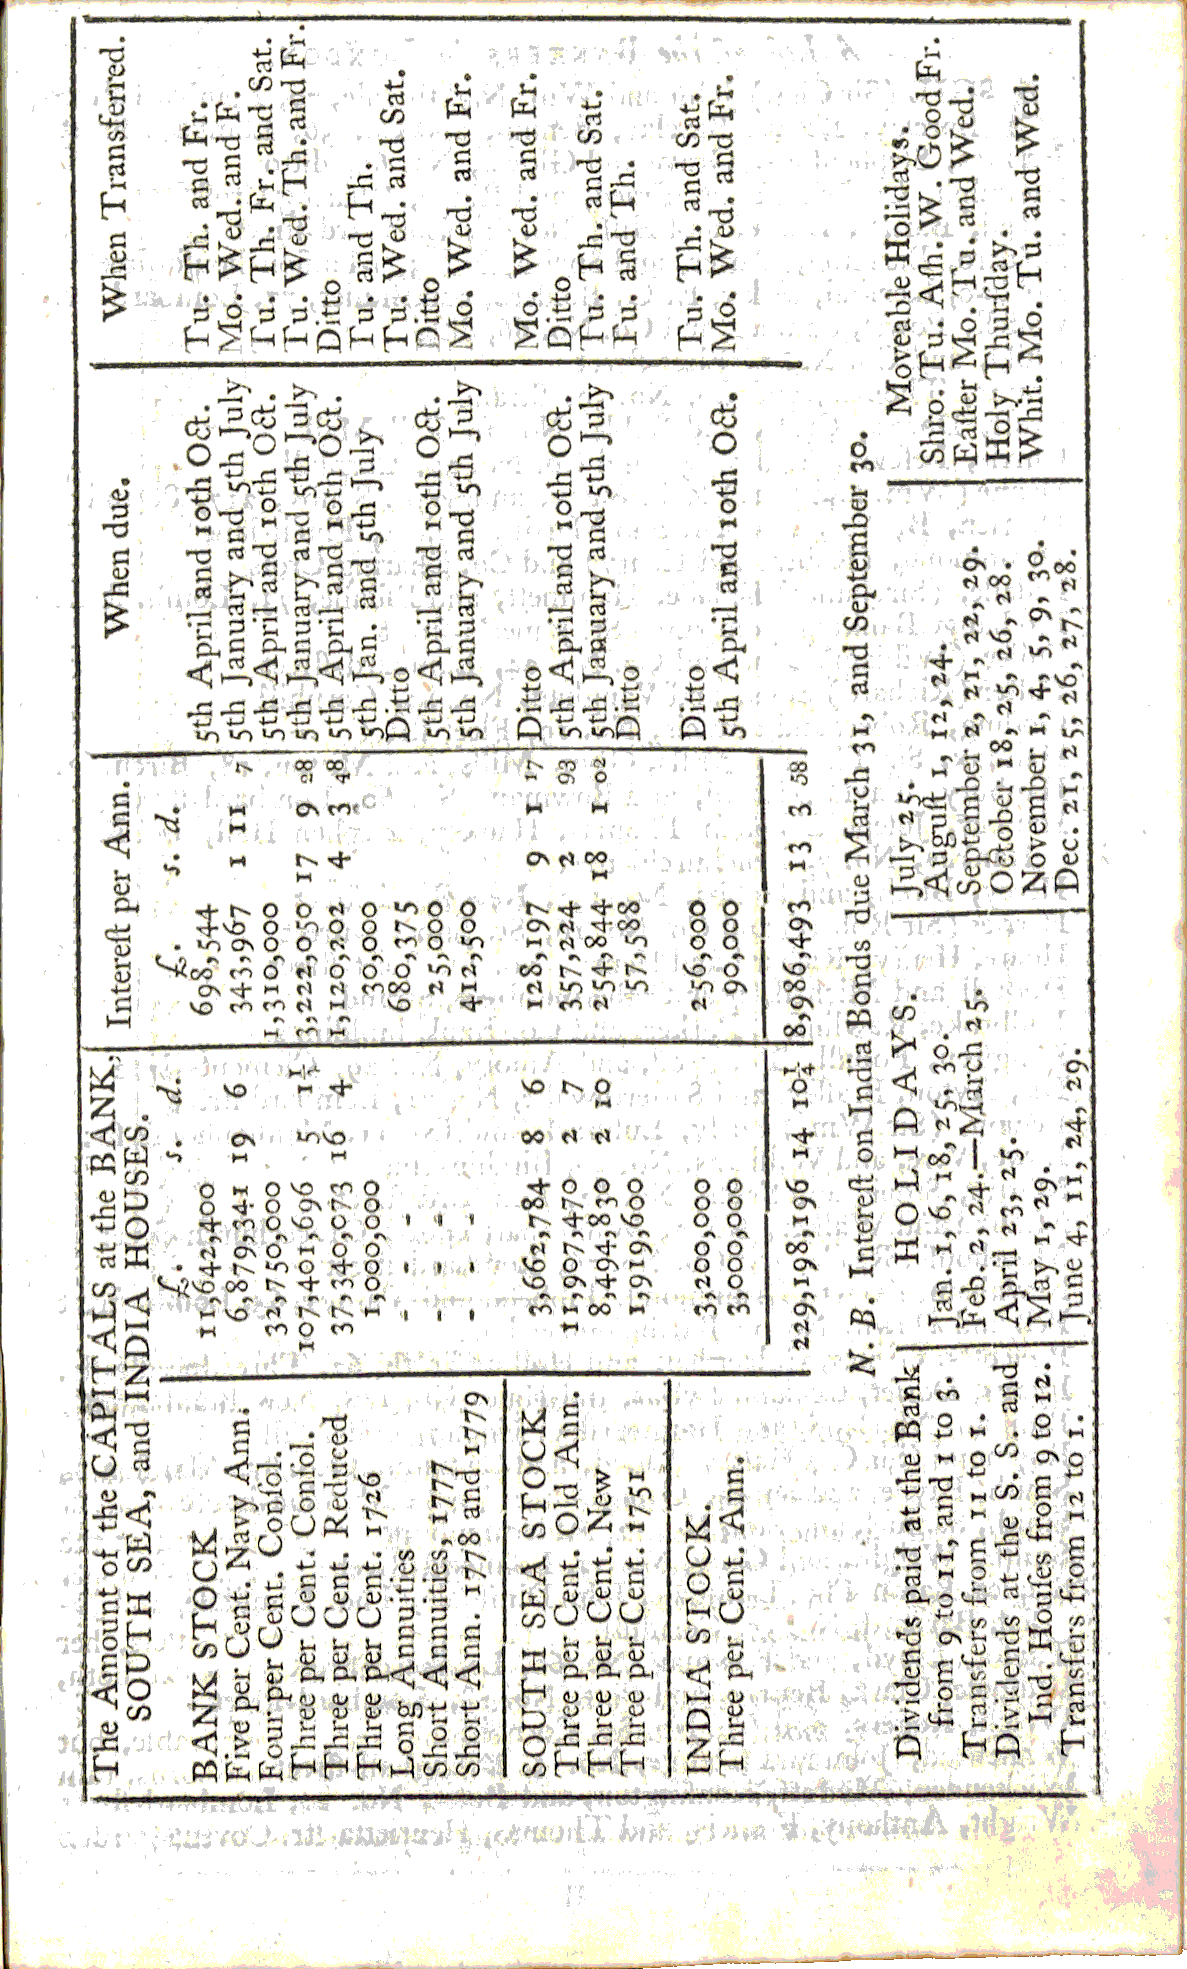 The Amount of the CAPITALS at the BANK, SOUTH SEA, and INDIA HOUSES. | Intereſt per Ann. | When due. | When Transferred.
£. s. d. | £. s. d.
BANK STOCK | 11,642,400 | 698,544 | 5th April and 10th Oct. | Tu. Th. and Fr.
Five per Cent. Navy Ann. | 6,879,341 19 6 | 343,967 1 11 7 | 5th January and 5th July | Mo. Wed. and F.
Four per Cent. Conſol. | 32,750,000 | 1,310,000 | 5th April and 10th Oct. | Tu. Th. Fr. and Sat.
Three per Cent. Conſol. | 107,401,696 5 1½ | 3,222,050 17 9 28 | 5th January and 5th July | Tu. Wed. Th. and Fr.
Three per Cent. Reduced | 37,340,073 16 4 | 1,120,202 4 3 48 | 5th April and 10th Oct. | Ditto
Three per Cent. 1726 | 1,000,000 | 30,000 | 5th Jan. and 5th July | Tu. and Th.
Long Annuities | - - - | 680,375 | Ditto | Tu. Wed. and Sat.
Short Annuities, 1777 | - - - | 25,000 | 5th April and 10th Oct. | Ditto
Short Ann. 1778 and 1779 | - - - | 412,500 | 5th January and 5th July | Mo. Wed. and Fr.
SOUTH SEA STOCK. | 3,662,784 8 6 | 128,197 9 1 17 | Ditto | Mo. Wed. and Fr.
Three per Cent. Old Ann. | 11,907,470 2 7 | 357,224 2 93 | 5th April and 10th Oct. | Ditto
Three per Cent. New | 8,494,830 2 10 | 254,844 18 1 02 | 5th January and 5th July | Tu. Th. and Sat.
Three per Cent. 1751 | 1,919,600 | 57,588 | Ditto | Tu. and Th.
INDIA STOCK. | 3,200,000 | 256,000 | Ditto | Tu. Th. and Sat.
Three per Cent. Ann. | 3,000,000 | 90,000 | 5th April and 10th Oct. | Mo. Wed. and Fr.
229,198,196 14 10¼ | 8,986,493 13 3 58
N. B. Intereſt on India Bonds due March 31, and September 30.
Dividends paid at the Bank
from 9 to 11, and 1 to 3.
Transfers from 11 to 1.
Dividends at the S. S. and
Ind. Houſes from 9 to 12.
Transfers from 12 to 1.
HOLIDAYS.
Jan. 1, 6, 18, 25, 30.
Feb. 2, 24.—March 25.
April 23, 25.
May 1, 29.
June 4, 11, 24, 29.
July 25.
Auguſt 1, 12, 24.
September 2, 21, 22, 29.
October 18, 25, 26, 28.
November 1, 4, 5, 9, 30.
Dec. 21, 25, 26, 27, 28.
Moveable Holidays.
Shro. Tu. Aſh. W. Good Fr.
Eaſter Mo. Tu. and Wed.
Holy Thurſday.
Whit. Mo. Tu. and Wed.